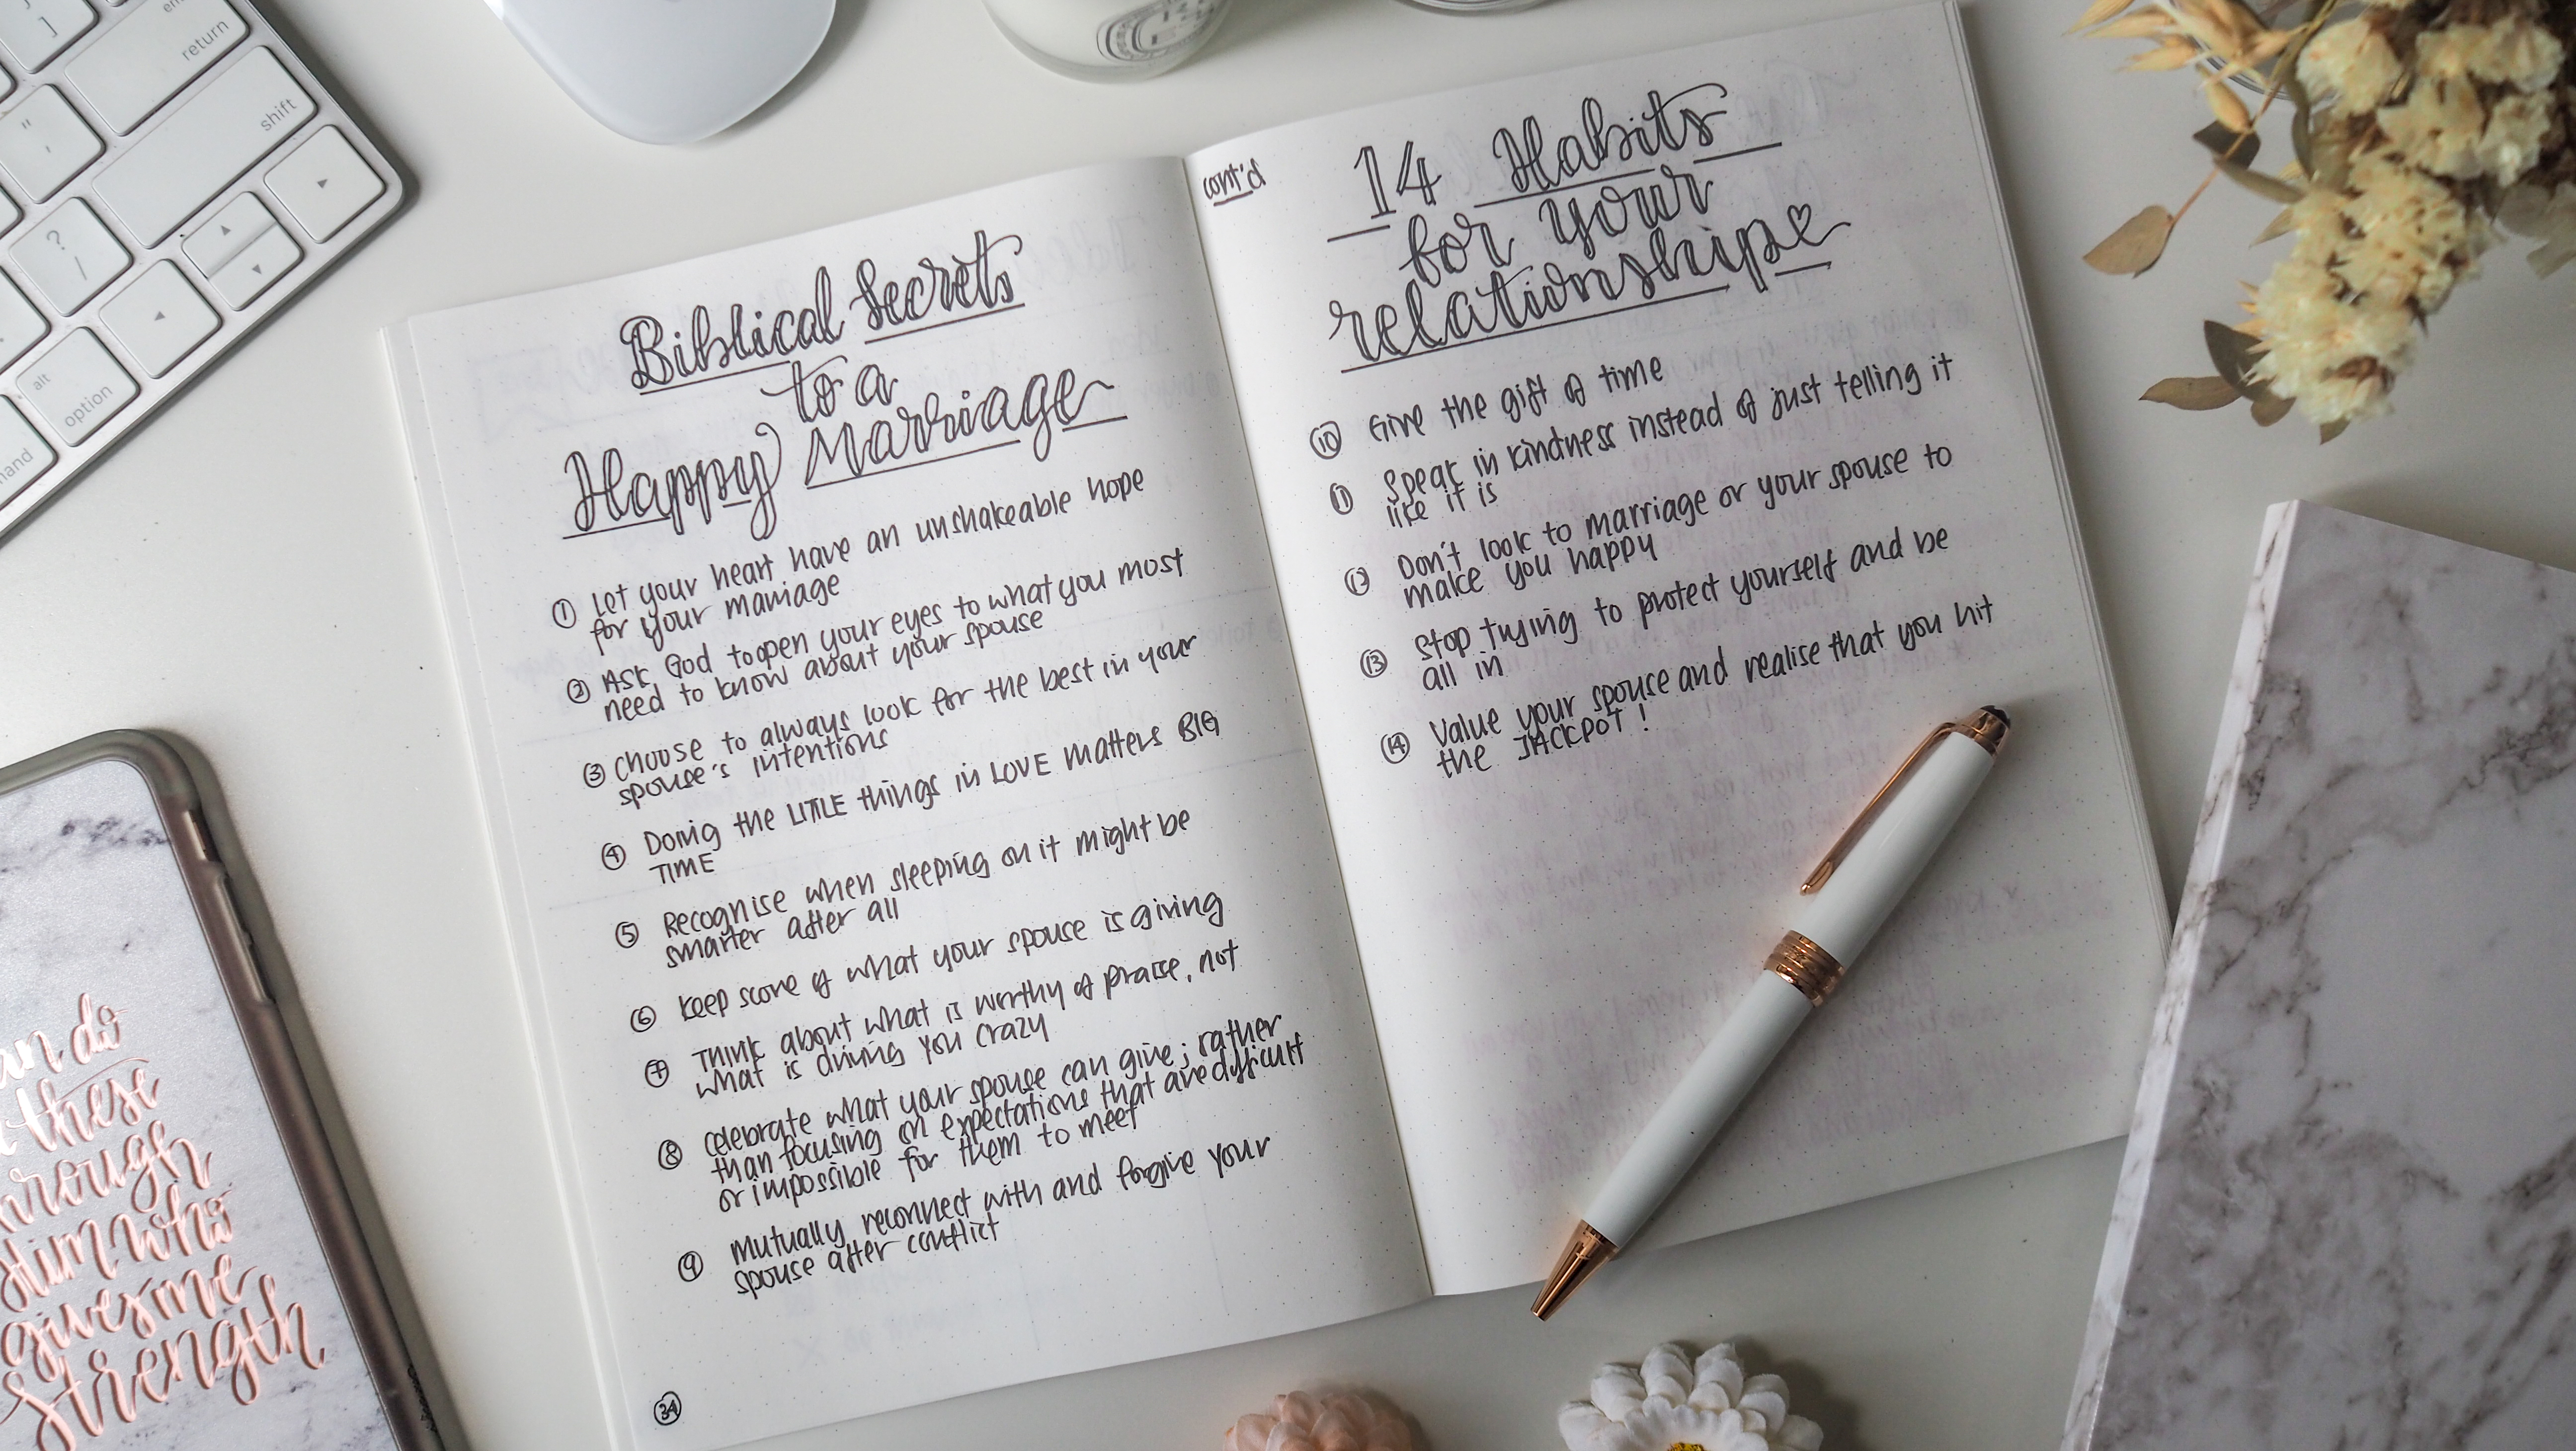 return
shift
?
/
alt
option
Biblical Secrets
to a
Happy Marriage
① Let your heart have an unshakeable hope
for your marriage
② Ask God to open your eyes to what you most
need to know about your spouse
③ Choose to always look for the best in your
spouse's intentions
④ Doing the LITTLE things in LOVE matters BIG
TIME
⑤ Recognise when sleeping on it might be
smarter after all
⑥ Keep score of what your spouse is giving
⑦ Think about what is worthy of praise, not
what is driving you crazy
⑧ Celebrate what your spouse can give; rather
than focusing on expectations that are difficult
or impossible for them to meet
⑨ Mutually reconnect with and forgive your
spouse after conflict
34
cont'd
14 Habits
for your
relationship
⑩ Give the gift of time
⑪ Speak in kindness instead of just telling it
like it is
⑫ Don't look to marriage or your spouse to
make you happy
⑬ Stop trying to protect yourself and be
all in
⑭ Value your spouse and realise that you hit
the JACKPOT!
do
these
through
Him who
gives me
strength